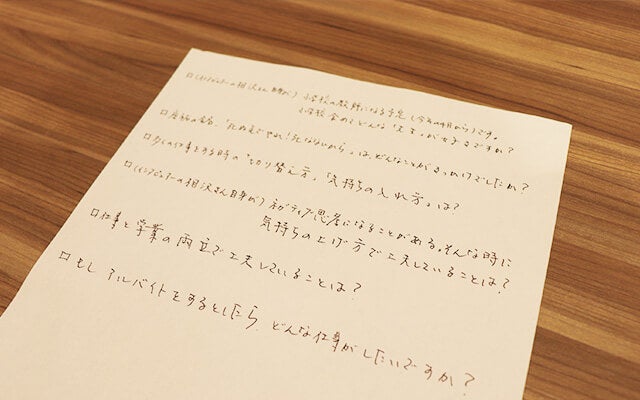 □(インタビュアーの相沢さん自身が) 小学校の教師になる予定(今年の4月から)です。
小学校含めてどんな「先生」が好きですか?
□座右の銘、「死ぬまでやれ!死なないから」は、どんなことがきっかけでしたか?
□多くの仕事をする時の「切り替え方」、「気持ちの入れ方」は?
□(インタビュアーの相沢さん自身が) ネガティブ思考になることがある。そんな時に
気持ちの上げ方で工夫していることは?
□仕事と学業の両立で工夫していることは?
□もしアルバイトをするとしたら、どんな仕事がしたいですか?